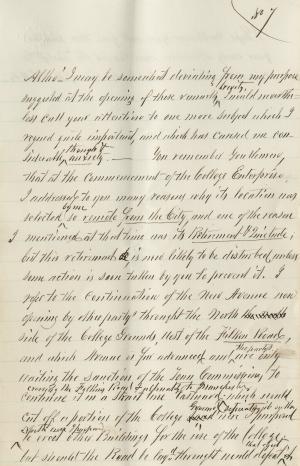 No 7
Altho' I may be somewhat deviating from my purpose
suggested at the opening of these remarks, brevity, I would never the-
less call your attention to one more subject which I
regard quite important, and which has caused me con
siderable thought & anxiety. — You remember Gentlemen,
that at the Commencement of the College Enterprise
I addressed to you many reasons why its location was
selected by me so remote from the City, and one of the reasons
I mentioned at that time was its Retirement & Quietude,
but this retirement is now likely to be disturbed unless
some action is soon taken by you to prevent it. I
refer to the Continuation of the New Avenue now
opening by other party's through the North
side of the College Grounds, West of the
and which Avenue is far advanced and the party's are only
waiting the sanction of the Town Commissioners, to
continue it in a strait line Eastward which would
Cut off a portion of the College Grounds
to erect other Buildings for the use of the College
but should the Road be thrown through it would defeat